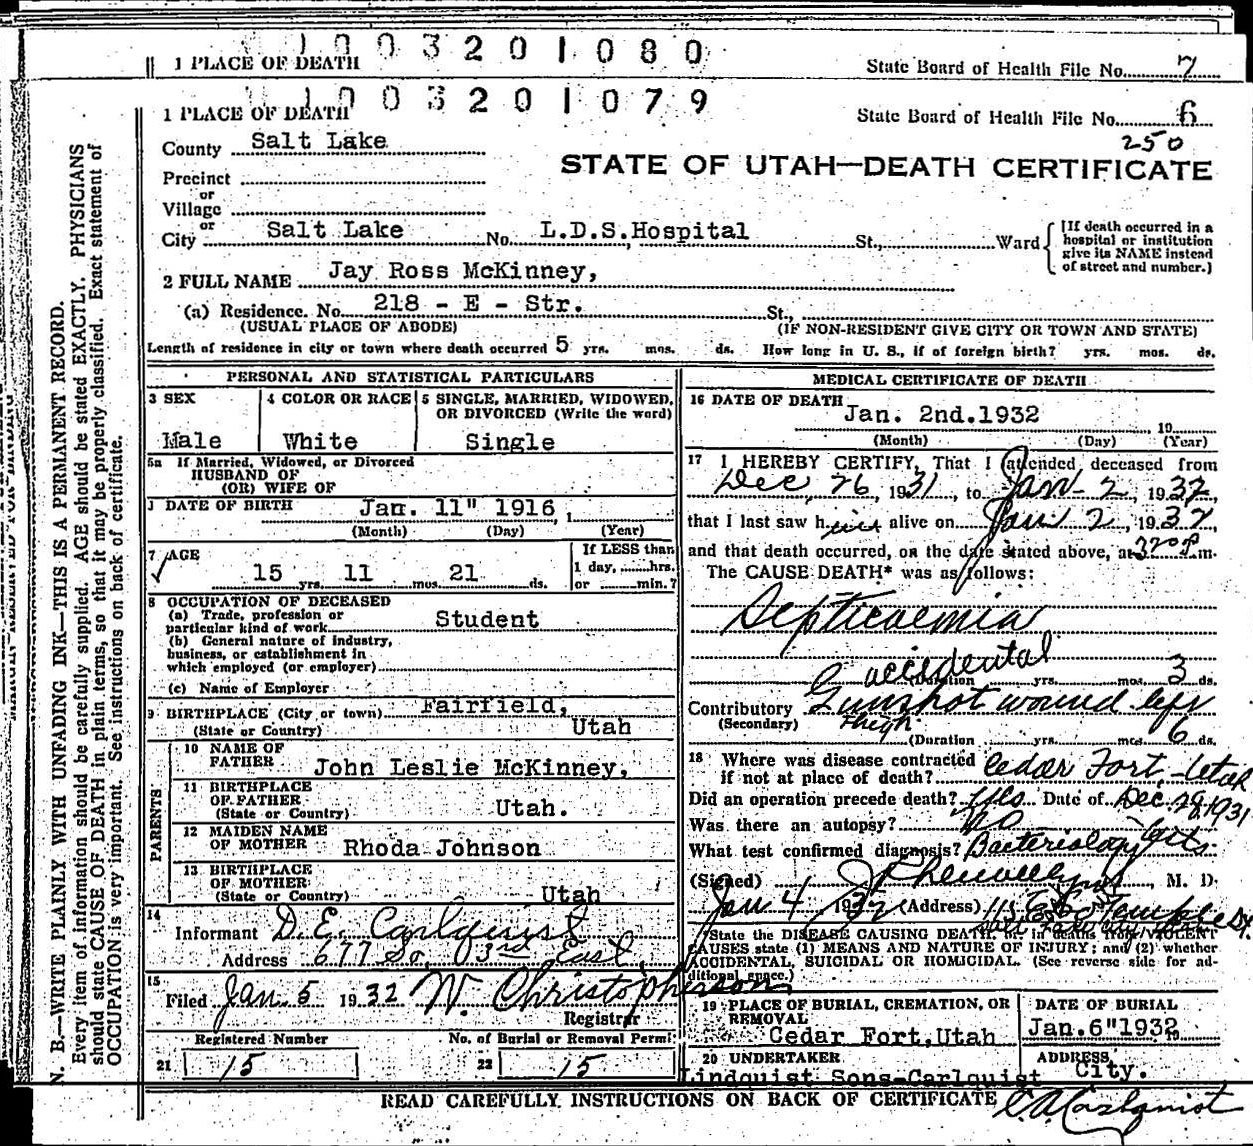 1003201080
1 PLACE OF DEATH State Board of Health File No. 7
1003201079
1 PLACE OF DEATH State Board of Health File No. 6
250
County Salt Lake
STATE OF UTAH—DEATH CERTIFICATE
Precinct
or
Village
or
City Salt Lake No. L.D.S.Hospital St., Ward {[If death occurred in a hospital or institution give its NAME instead of street and number.]
2 FULL NAME Jay Ross McKinney,
(a) Residence. No. 218 - E - Str. St.,
(USUAL PLACE OF ABODE) (IF NON-RESIDENT GIVE CITY OR TOWN AND STATE)
Length of residence in city or town where death occurred 5 yrs. mos. ds. How long in U. S., if of foreign birth? yrs. mos. ds.
PERSONAL AND STATISTICAL PARTICULARS
3 SEX 4 COLOR OR RACE 5 SINGLE, MARRIED, WIDOWED,
OR DIVORCED (Write the word)
Male White Single
5a If Married, Widowed, or Divorced
HUSBAND OF
(OR) WIFE OF
DATE OF BIRTH Jan. 11" 1916
(Month) (Day) (Year)
7 AGE If LESS than
15 yrs. 11 mos. 21 ds. 1 day, hrs.
or min.?
8 OCCUPATION OF DECEASED
(a) Trade, profession or
particular kind of work Student
(b) General nature of industry,
business, or establishment in
which employed (or employer)
(c) Name of Employer
9 BIRTHPLACE (City or town) Fairfield,
(State or Country) Utah
PARENTS
10 NAME OF
FATHER John Leslie McKinney,
11 BIRTHPLACE
OF FATHER
(State or Country) Utah.
12 MAIDEN NAME
OF MOTHER Rhoda Johnson
13 BIRTHPLACE
OF MOTHER
(State or Country) Utah
14
Informant D.E. Carlquist
Address 677 So. 3rd East
15
Filed Jan 5 1932 W. Christopherson
Registrar
Registered Number No. of Burial or Removal Permit
21 15 22 15
MEDICAL CERTIFICATE OF DEATH
16 DATE OF DEATH
Jan. 2nd.1932 19
(Month) (Day) (Year)
17 I HEREBY CERTIFY, That I attended deceased from
Dec 26, 1931, to Jan 2, 1932,
that I last saw him alive on Jan 2, 1932,
and that death occurred, on the date stated above, at 320 p m.
The CAUSE DEATH* was as follows:
Septicaemia
accidental
(Duration yrs. mos. 3 ds.
Contributory Gunshot wound left
(Secondary) thigh
(Duration yrs. mos. 6 ds.
18 Where was disease contracted
if not at place of death? Cedar Fort, Utah
Did an operation precede death? Yes Date of Dec. 28, 1931
Was there an autopsy? No
What test confirmed diagnosis? Bacteriology tests
(Signed) M. D.
Jan 4 1932 (Address) 115 E So Temple St.
*State the DISEASE CAUSING DEATH, or in deaths from VIOLENT
CAUSES state (1) MEANS AND NATURE OF INJURY; and (2) whether
ACCIDENTAL, SUICIDAL OR HOMICIDAL. (See reverse side for ad-
ditional space.)
19 PLACE OF BURIAL, CREMATION, OR
REMOVAL
Cedar Fort,Utah
DATE OF BURIAL
Jan.6"1932 19
20 UNDERTAKER
Lindquist Sons-Carlquist
ADDRESS
City.
READ CAREFULLY INSTRUCTIONS ON BACK OF CERTIFICATE C.A. Carlquist
N. B.—WRITE PLAINLY WITH UNFADING INK—THIS IS A PERMANENT RECORD.
Every item of information should be carefully supplied. AGE should be stated EXACTLY. PHYSICIANS
should state CAUSE OF DEATH in plain terms, so that it may be properly classified. Exact statement of
OCCUPATION is very important. See instructions on back of certificate.